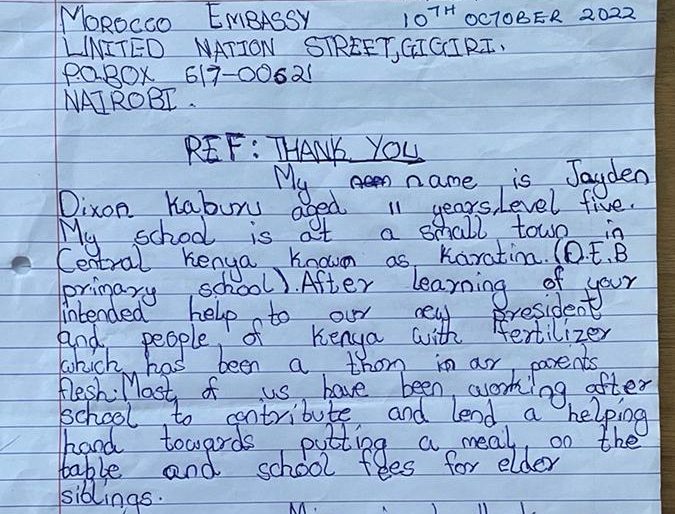 MOROCCO EMBASSY 10TH OCTOBER 2022
UNITED NATION STREET, GIGIRI.
P.O.BOX 617-00621
NAIROBI.
REF: THANK YOU
My name is Jayden
Dixon Kaburu aged 11 years, Level five.
My school is at a small town in
Central Kenya known as Karatina. (D.E.B
primary school). After learning of your
intended help to our new president
and people of Kenya with fertilizer
which has been a thorn in our parents
flesh. Most of us have been working after
school to contribute and lend a helping
hand towards putting a meal on the
table and school fees for elder
siblings.